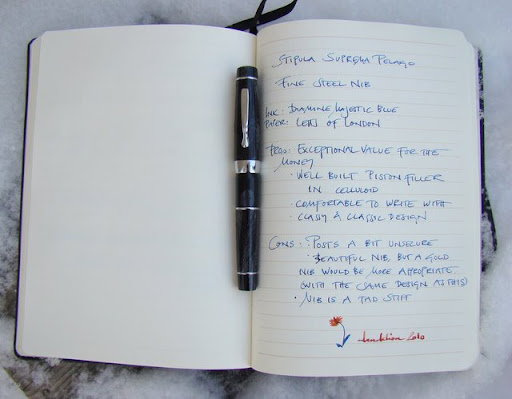 STIPULA SUPREMA PELAGO
FINE STEEL NIB
INK: DIAMINE MAJESTIC BLUE
PAPER: LETTS OF LONDON
PROS: EXCEPTIONAL VALUE FOR THE
MONEY
· WELL BUILT PISTON FILLER
IN CELLULOID
· COMFORTABLE TO WRITE WITH
· CLASSY & CLASSIC DESIGN
CONS: · POSTS A BIT UNSECURE
· BEAUTIFUL NIB, BUT A GOLD
NIB WOULD BE MORE APROPRIATE
(WITH THE SAME DESIGN AS THIS)
· NIB IS A TAD STIFF